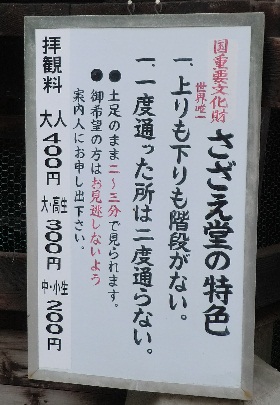 国重要文化財
さざえ堂の特色
世界唯一
一、上りも下りも階段がない。
一、一度通った所は二度通らない。
●土足のまま二～三分で見られます。
●御希望の方はお見逃しないよう
案内人にお申し出下さい。
拝観料
大人400円
大・高生300円
中・小生200円